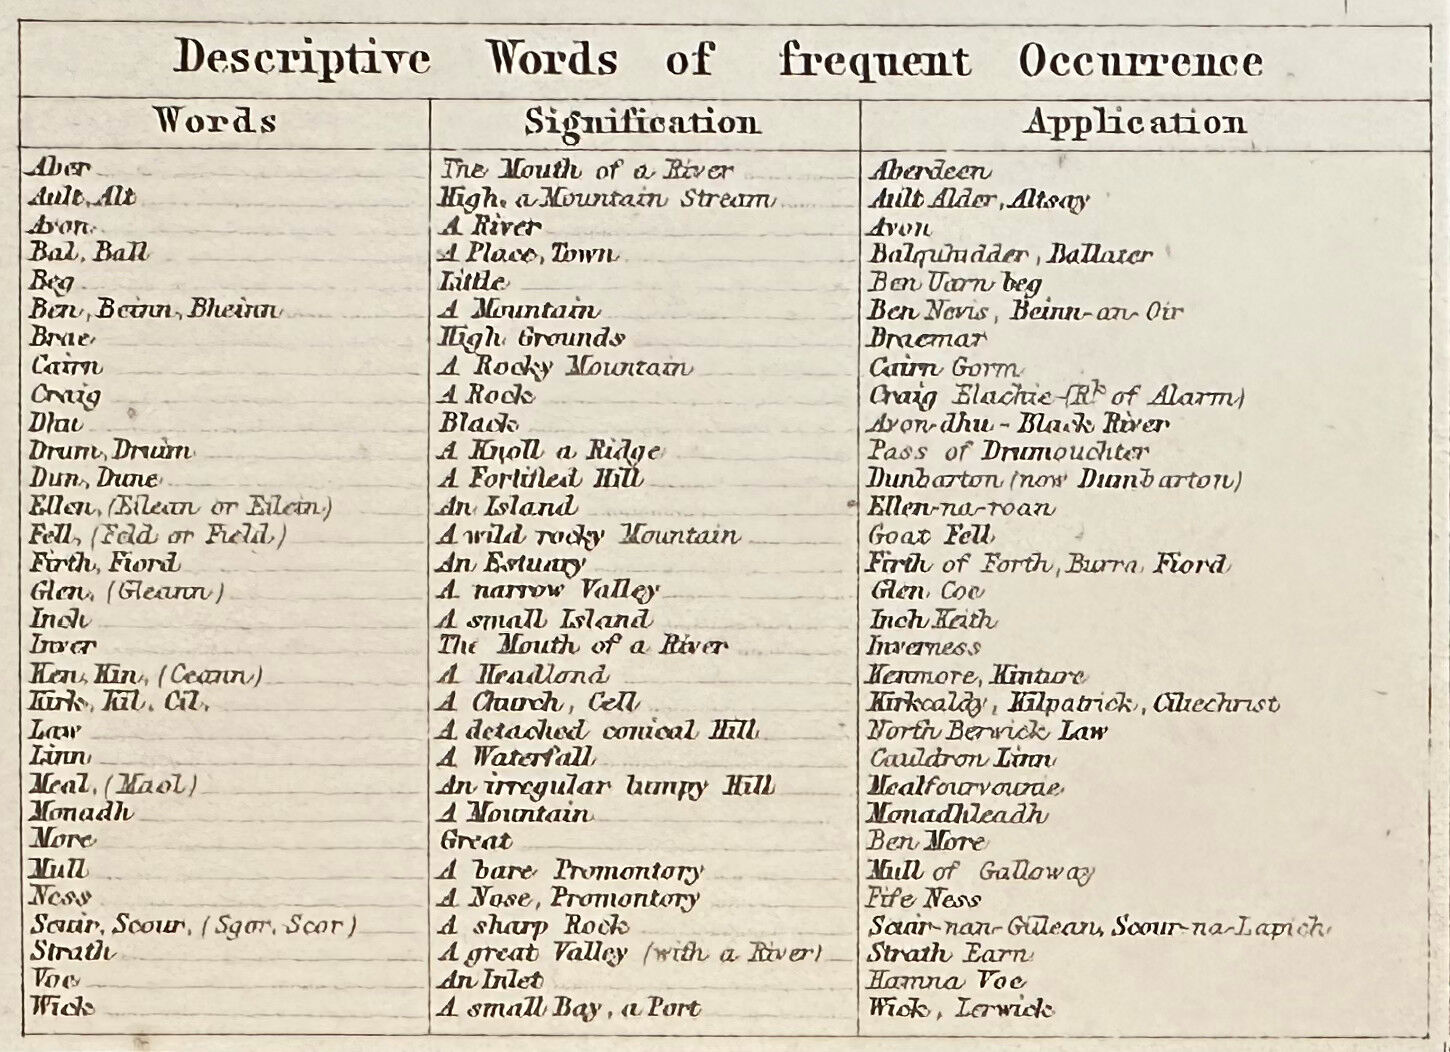 Descriptive Words of frequent Occurrence
Words Signification Application
Aber The Mouth of a River Aberdeen
Ault, Alt High, a Mountain Stream Ault Alder, Altsay
Avon A River Avon
Bal, Ball A Place, Town Balquhidder, Ballater
Beg Little Ben Uarn beg
Ben, Beinn, Bheinn A Mountain Ben Nevis, Beinn-an-Oir
Brae High Grounds Braemar
Cairn A Rocky Mountain Cairn Gorm
Craig A Rock Craig Elachie (Rk of Alarm)
Dhu Black Avon-dhu - Black River
Drum, Druim A Knoll a Ridge Pass of Drumouchter
Dun, Dune A Fortified Hill Dunbarton (now Dumbarton)
Ellen, (Eilean or Eilein) An Island Ellen-na-roan
Fell, (Feld or Field) A wild rocky Mountain Goat Fell
Firth, Fiord An Estuary Firth of Forth, Burra Fiord
Glen, (Gleann) A narrow Valley Glen Coe
Inch A small Island Inch Keith
Inver The Mouth of a River Inverness
Ken, Kin, (Ceann) A Headlond Kenmore, Kinture
Kirk, Kil, Cil, A Church, Cell Kirkcaldy, Kilpatrick, Cilechrist
Law A detached conical Hill North Berwick Law
Linn A Waterfall Cauldron Linn
Meal, (Maol) An irregular lumpy Hill Mealfourvounie
Monadh A Mountain Monadhleadh
More Great Ben More
Mull A bare Promontory Mull of Galloway
Ness A Nose, Promontory Fife Ness
Scuir, Scour, (Sgor, Scor) A sharp Rock Scuir-nan-Gillean, Scour-na-Lapich
Strath A great Valley (with a River) Strath Earn
Voe An Inlet Hamna Voe
Wick A small Bay, a Port Wick, Lerwick